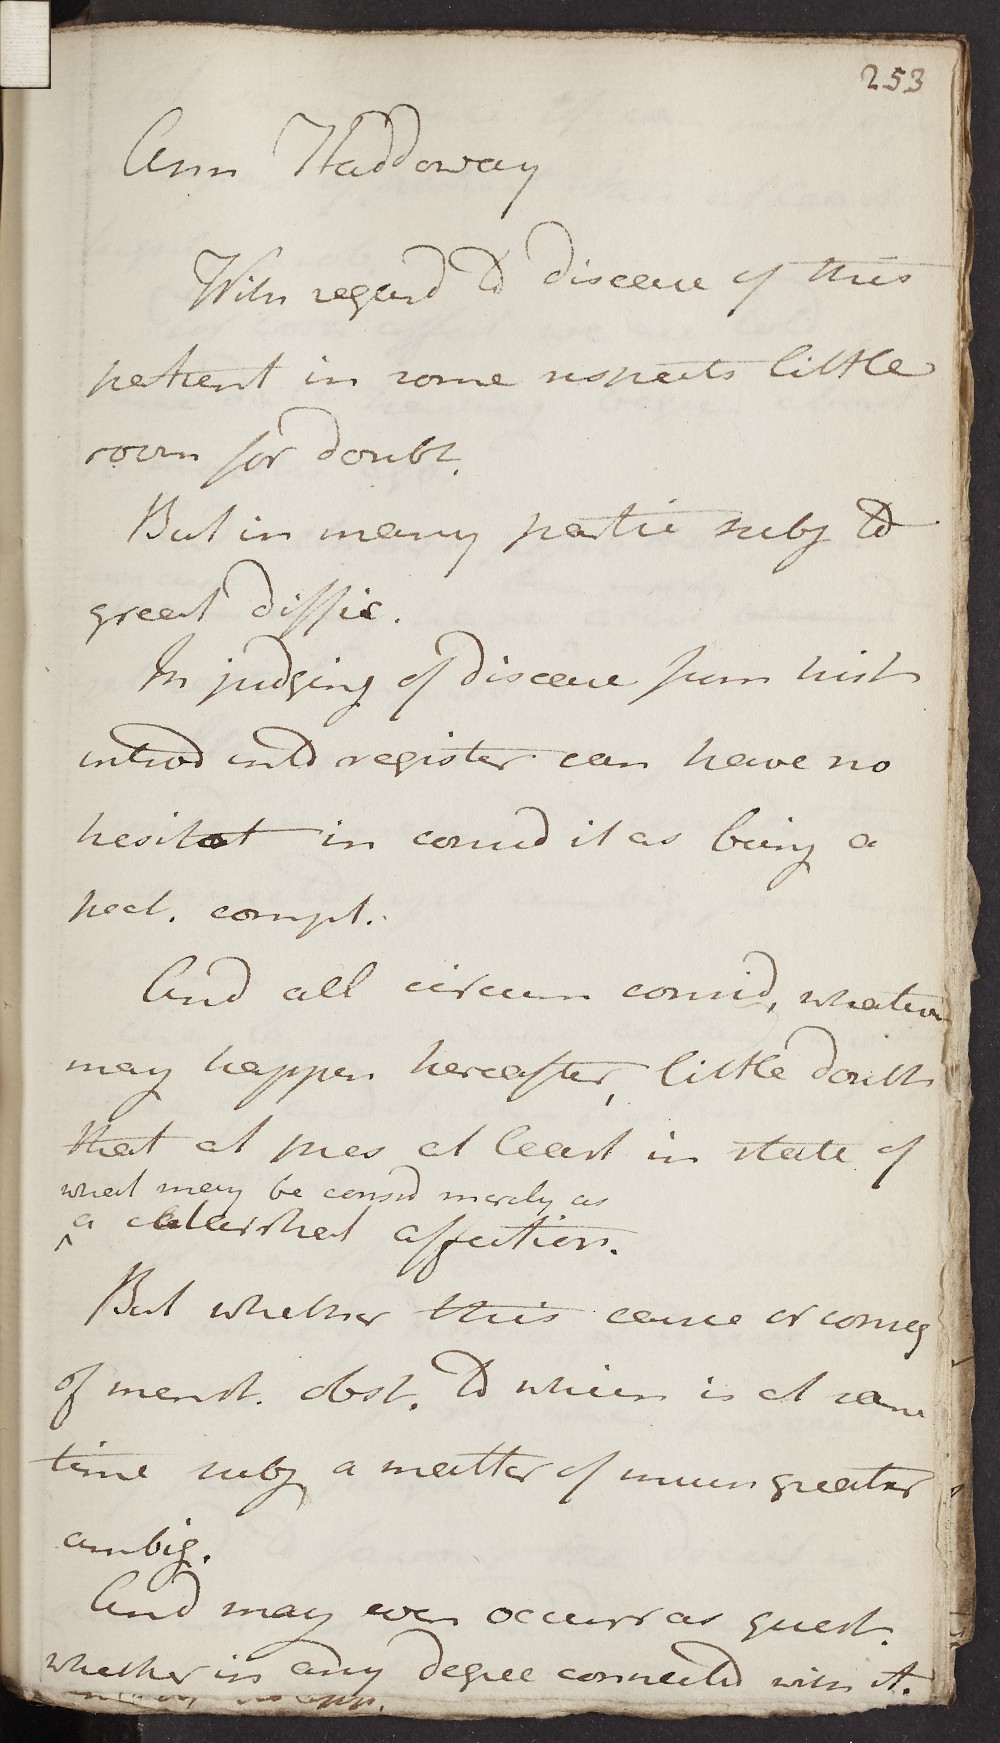 253
Ann Haddoway
With regard to disease of this
patient in some respects little
room for doubt.
But in many partic subj to
great diffic.
In judging of disease from hist
introd into register can have no
hesitat in consid it as being a
pect. compt.
And all circum consid, whatever
may happen hereafter, little doubt
that at pres at least in state of
what may be consd merely as
a catarrhal affection.
But whether this cause or conseq
of menst. obst. to which is at same
time subj a matter of much greater
ambig.
And may even occurr as quest.
whether in any degree connected with it.